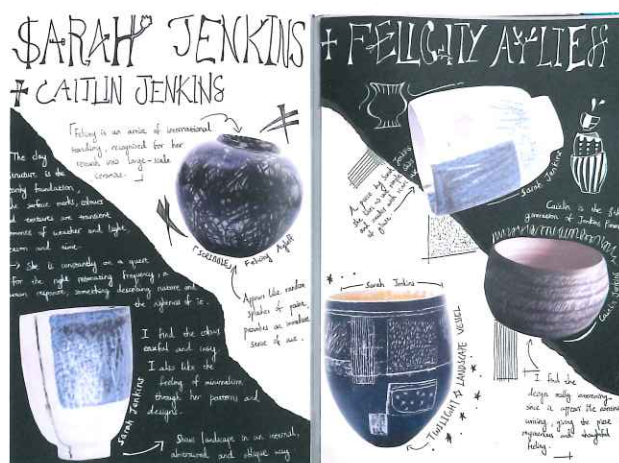 SARAH JENKINS
+ CAITLIN JENKINS
Felicity is an artist of international
standing, recognised for her
research into large-scale
ceramic
The clay
structure is the
body foundation,
the surface marks, colours
and textures are transient
of weather and light,
and time.
→ She is constantly on a quest
for the right resonating frequency, a
human response, something describing nature and
the of it.
[SCRIBBLE] Felicity Aylieff
Appears like random
splashes of paint,
provides an
sense of
I find the colours
and cosy
I also like the
feeling of minimalism
through her patterns and
designs.
Sarah Jenkins
→ Shows landscape in an
abstracted and oblique way
+ FELICITY AYLIEFF
A piece by Sarah Jenkins
Sarah Jenkins
Caitlin is the
generation of Jenkins
Caitlin Jenkins
Sarah Jenkins
TWILIGHT LANDSCAPE VESSEL
I find the
design really
since it appears
giving the piece
mysterious and thoughtful
feeling.